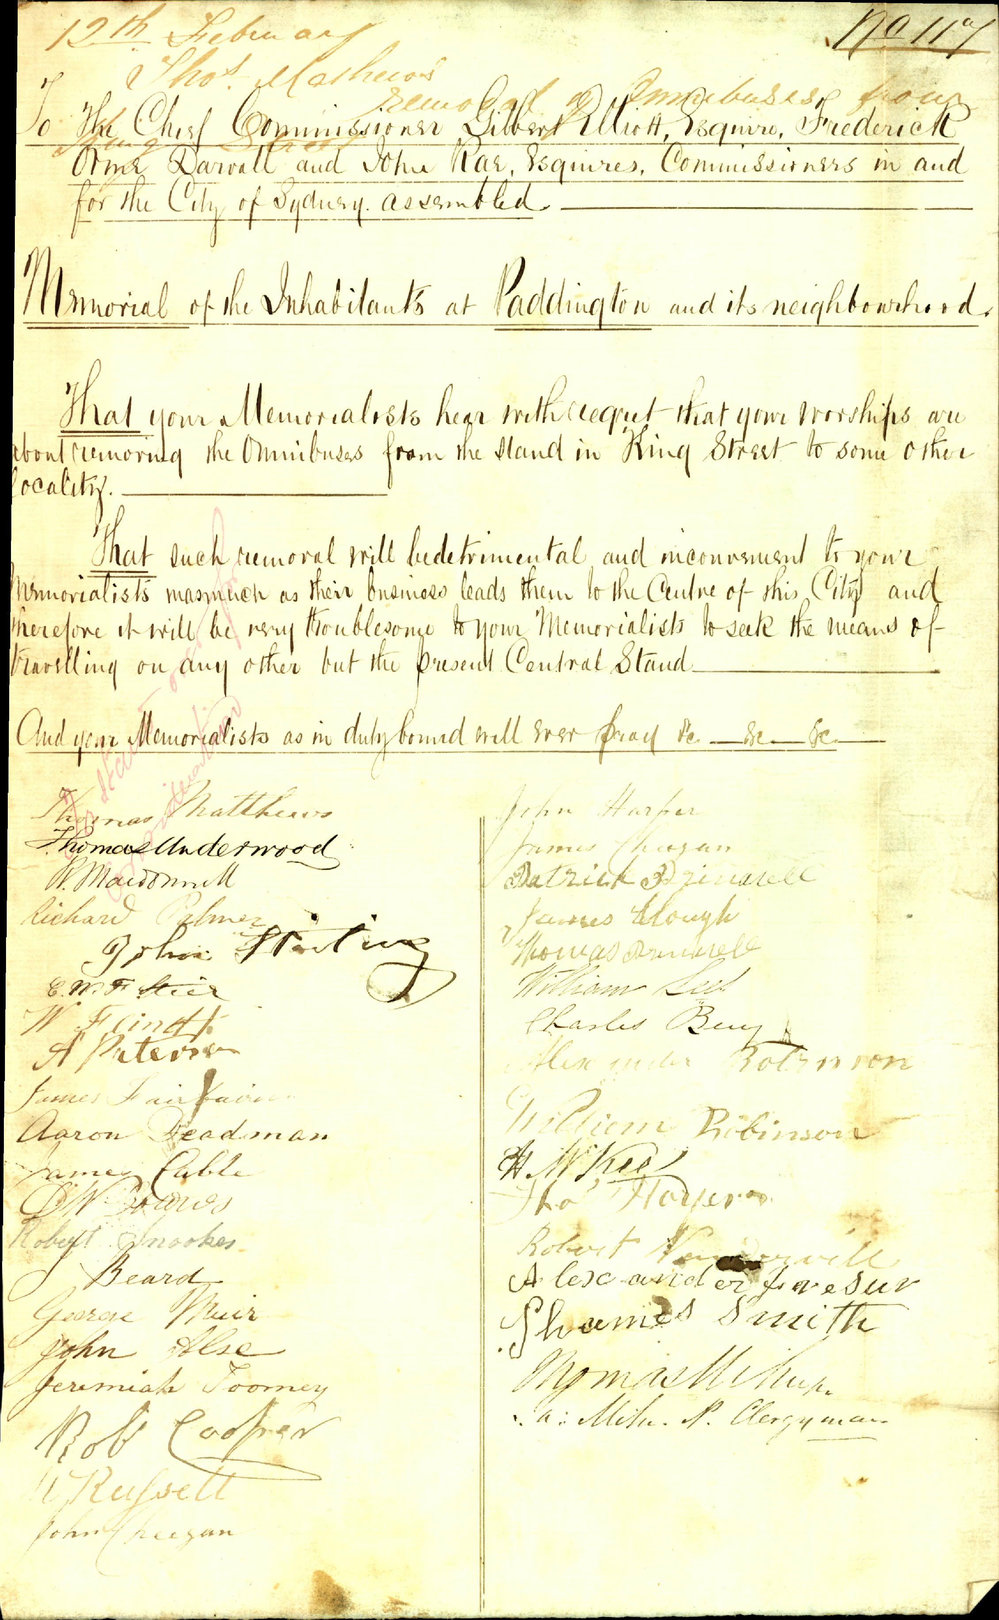 12th February
No 117
Thos. Mathews
removal of Omnibuses from
King Street
To The Chief Commissioner Gilbert Elliott, Esquire, Frederick
Orme Darvall and John Rae, Esquires, Commissioners in and
for the City of Sydney. assembled.
Memorial of the Inhabitants at Paddington and its neighbourhood.
That your Memorialists hear with regret that your worships are
about removing the Omnibuses from the stand in King Street to some other
locality.
That such removal will be detrimental and inconvenient to your
Memorialists inasmuch as their business leads them to the Centre of this City and
therefore it will be very troublesome to your Memorialists to seek the means of
travelling on any other but the present Central Stand
And your Memorialists as in duty bound will ever pray &c &c &c
Thomas Matthews
Thomas Underwood
W. Macdonnell
Richard Palmer
John Starling
E. W. F
W Flindt
A Peterson
James Fairbairn
Aaron Deadman
James Cable
Robert Snookes
J Beard
George Muir
John Alse
Jeremiah Toomey
Rob Cooper
W Russell
John Cheegan
John Harper
James Cheegan
Patrick Brindsell
James Clough
Thomas
William Lee
Charles Bury
Alexander Robinson
William Robinson
H. McKee
Tho
Robert
Alexander Fresur
Shames Smith
Thomas
a Clergyman